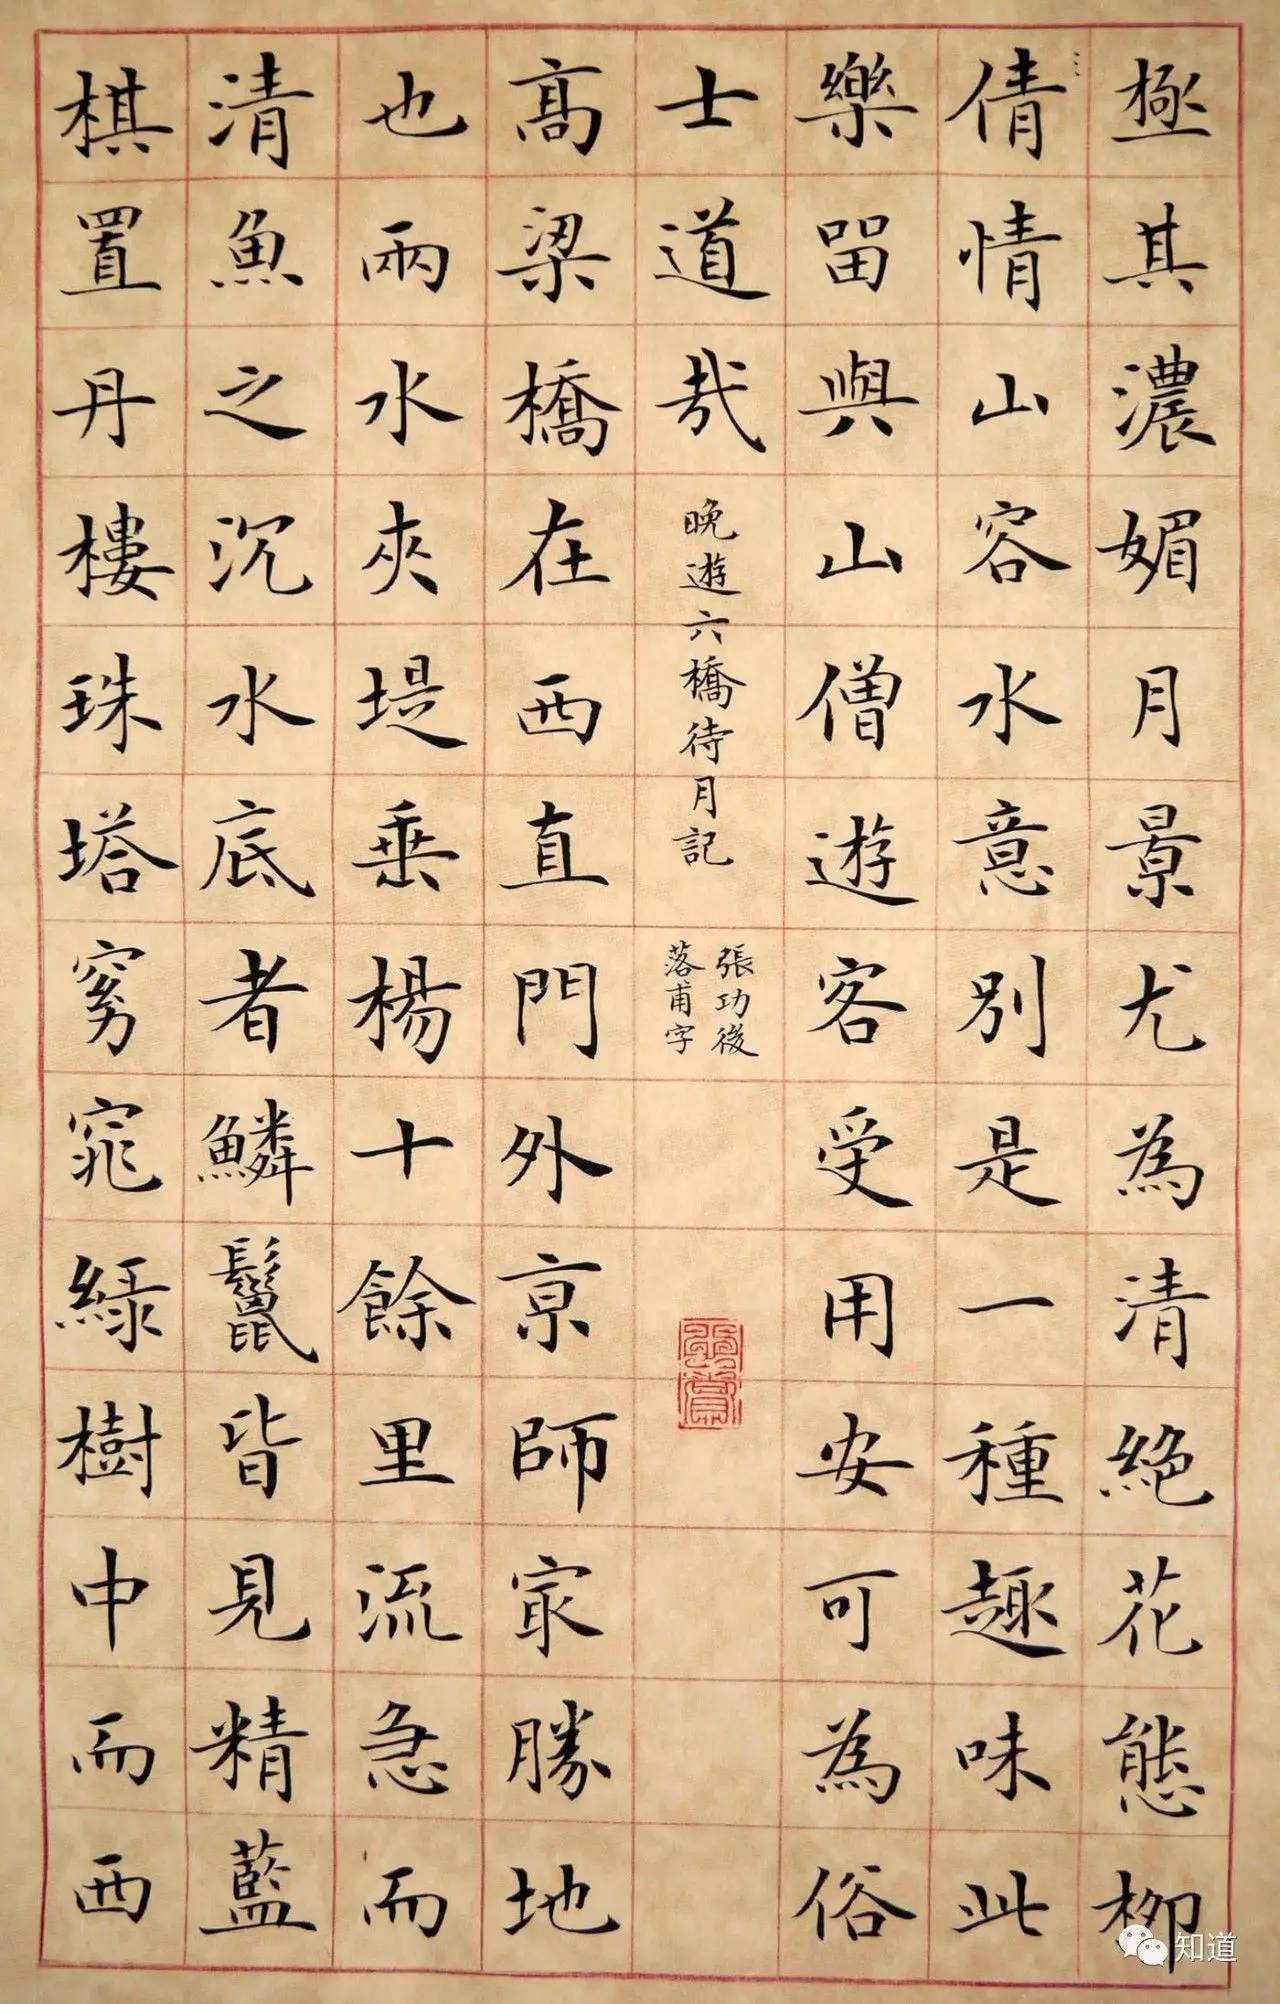 極其濃媚月景尤為清絕花態柳
倩情山容水意別是一種趣味此
樂留與山僧遊客受用安可為俗
士道哉
晚遊六橋待月記
張功後
落甫字
高梁橋在西直門外京師最勝地
也兩水夾堤垂楊十餘里流急而
清魚之沉水底者鱗鬣皆見精藍
棋置丹樓珠塔窈窕綠樹中而西
知道